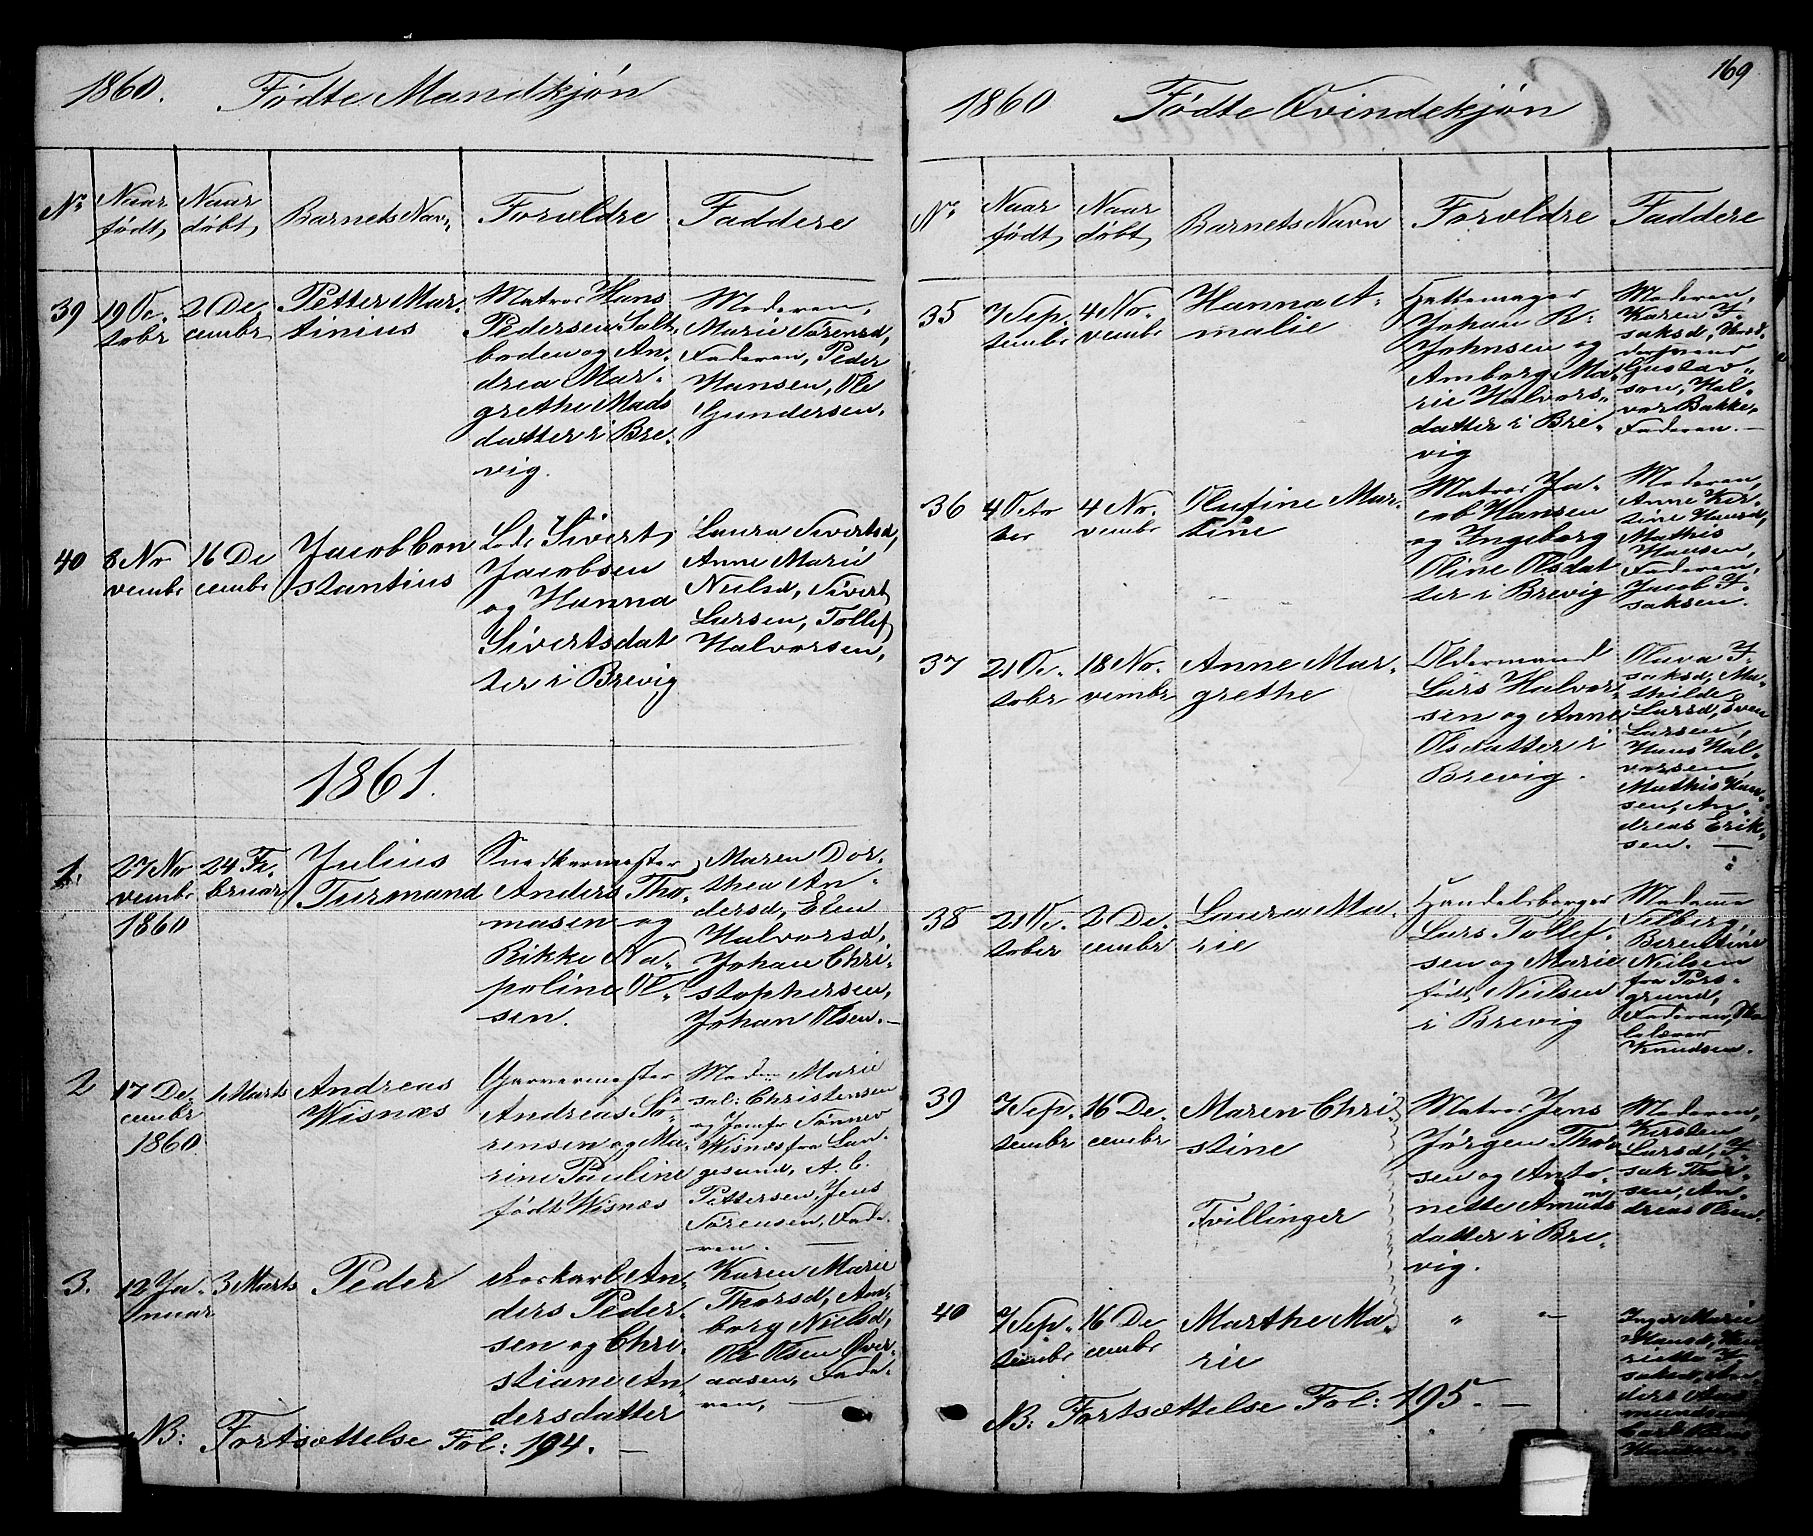 1860. Fødte Mandkjøn
No
Naar
født
Naar
døbt
Barnets Navn
Forældre
Faddere
39
19 Oc
tobr
2 De
cembr
Petter Mar-
tinius
Matros Hans
Pedersen Salt
boden og An-
drea Mar-
grethe Mads
datter i Bre-
vig.
Moderen,
Marie Sørensd,
Faderen, Peder
Hansen, Ole
Gundersen.
40
8 No
vembr
16 De
cembr
Jacob Con
stantius
Lods Sivert
Jacobsen
og Hanna
Sivertsdat
ter i Brevig
Laura Sivertsd,
Anne Marie
Nielsd, Sivert
Larsen, Tollef
Halvorsen,
1861.
1.
27 No
vembr
1860
24 Fe-
bruar
Julius
Turmand
Snedkermester
Anders Tho-
masen og
Rikke Na-
poline Ol-
sen.
Maren Dor-
thea An-
dersd, Elen
Halvorsd,
Johan Chri-
stophersen,
Johan Olsen.
2
17 De-
cembr
1860
1 Marts
Andreas
Wisnæs
Garvermester
Andreas Sø-
rensen og Ma-
rine Pauline
født Wisnæs
Madm Marie
sal: Christensen
og Jomfr Sønnev
Wisnæs fra Lan-
gesund, A. C.
Pettersen, Jens
Sørensen, Fade-
ren.
3.
12 Ja-
nuar
3 Marts
Peder
Anders Peder-
sen og Chri-
stiane An-
dersdatter
Karen Marie
Thorsd, Am-
borg Nielsd,
Ole Olsen Øver-
aasen, Fade-
ren,
NB: Fortsættelse Fol: 194.
169
1860 Fødte Qvindekjøn
No
Naar
født
Naar
døbt
Barnets Navn
Forældre
Faddere
35
7 Sep-
tembr
4 No-
vembr
Hanna A-
malie
Hattemager
Johan R-
Johnsen og
Amborg Ma-
rie Halvors-
datter i Bre-
vig
Moderen,
Karen I-
saksd,
Gustav-
sen, Hal-
vor Bakke,
Faderen.
36
4 Octo
ber
4 No-
vembr
Olufine Mar-
tine
Matros Ja-
cob Hansen
og Ingeborg
Oline Olsdat
ter i Brevig
Moderen,
Anne Kir-
stine Hansd,
Mathis
Hansen,
Faderen,
Jacob I-
saksen.
37
21 Oc-
tobr
18 No-
vembr
Anne Mar-
grethe
Oldermand
Lars Halvor-
sen og Anne
Olsdatter i
Brevig.
Olava I-
saksd, Ma-
thilde
Larsd, Even
Larsen,
Hans Hal-
vorsen,
Mathis Han-
sen, An-
dreas Erik-
sen.
38
21 Oc-
tober
2 De-
cembr
Laura Ma-
rie
Handelsborger
Lars Tollef-
sen og Marie
født Nielsen
i Brevig
Madame
Selberg,
Berentine
Nielsen
fra Pors-
grund,
Faderen,
Knudsen.
39
7 Sep-
tembr
16 De-
cembr
Maren Chri
stine
Tvillinger
Matros Jens
Jørgen Thor
sen og Anto-
nette Amunds
datter i Bre-
vig.
Moderen,
Kirsten
Larsd, I-
sak Thor-
sen, An-
dreas Olsen.
40
7 Sep-
tembr
16 De
cembr
Marthe Ma-
rie
" "
Inger Marie
NB: Fortsættelse Fol: 195.